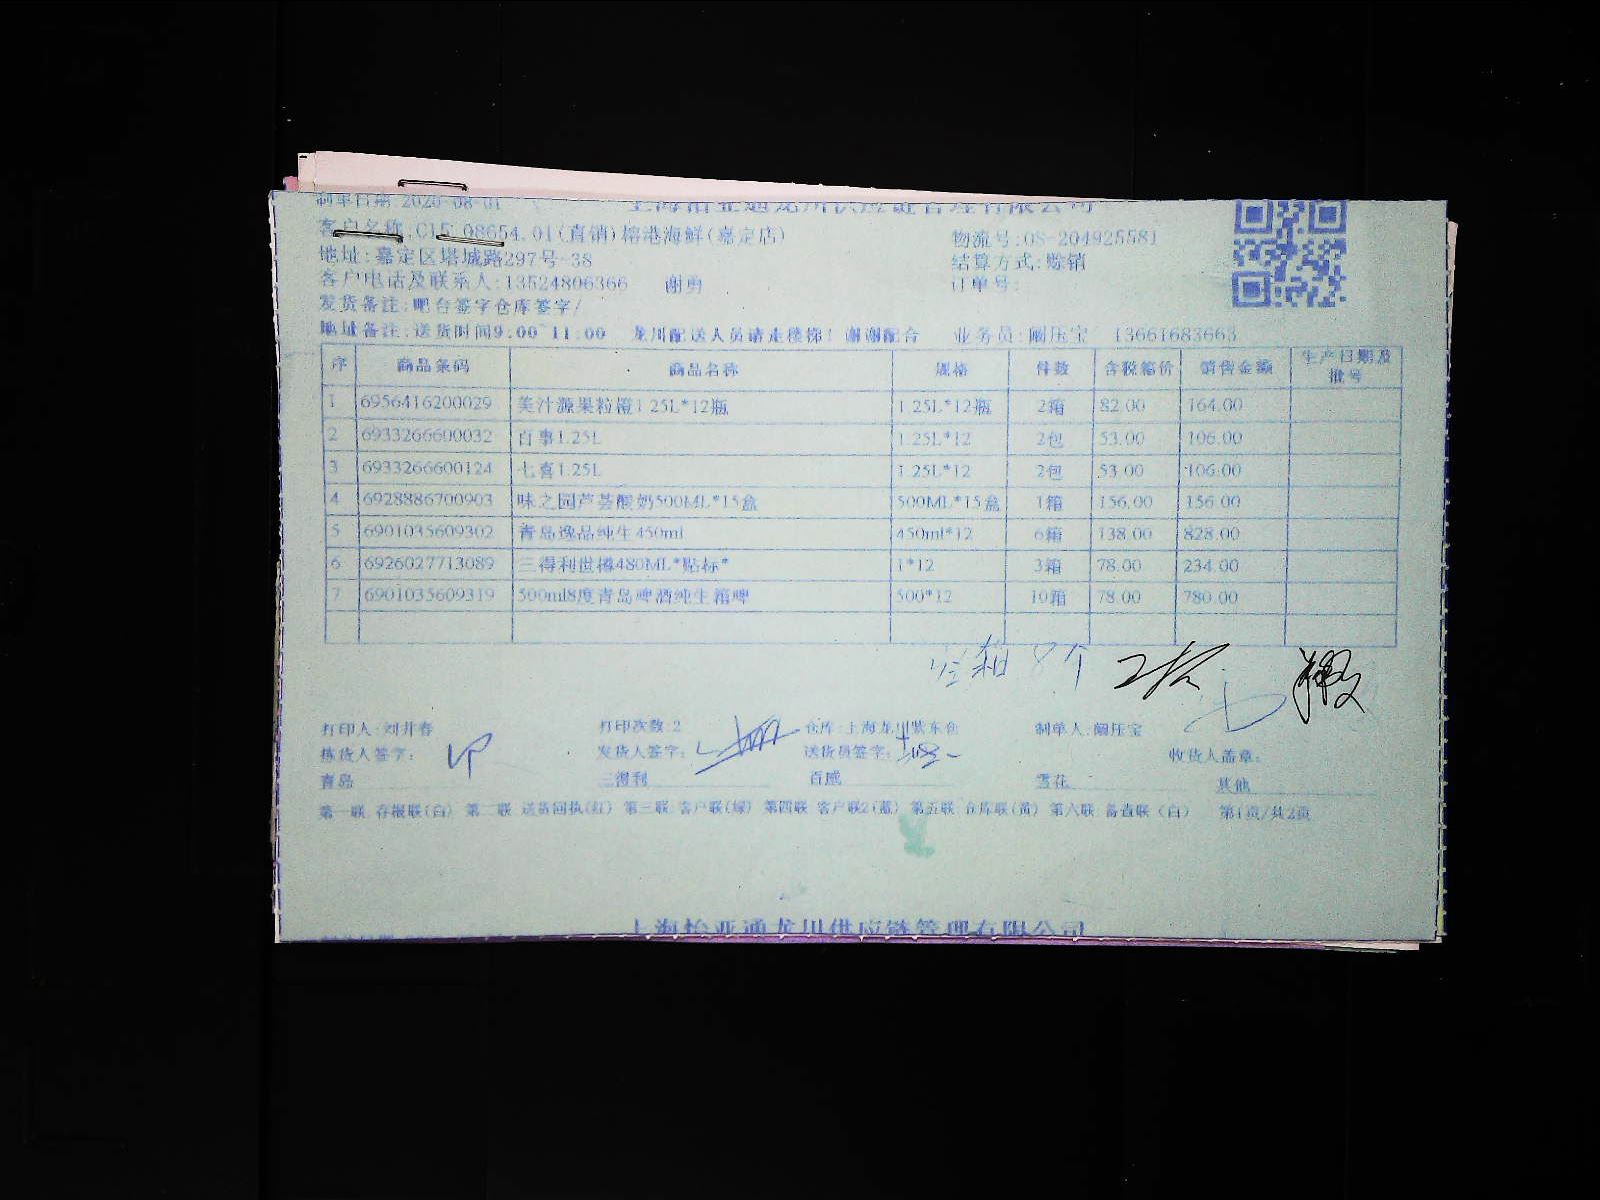 制单日期:2020-08-01
上海怡亚通龙川供应链管理有限公司
客户名称:C15 08654.01(直销)榕港海鲜(嘉定店)
物流号:08-204925581
地址:嘉定区塔城路297号-38
结算方式:赊销
客户电话及联系人:13524806366 谢勇
订单号:
发货备注:吧台签字仓库签字/
地址备注:送货时间9:00-11:00 龙川配送人员请走楼梯!谢谢配合 业务员:阚压宝 13661683663
序 商品条码 商品名称 规格 件数 含税箱价 销售金额 生产日期及批号
1 6956416200029 美汁源果粒橙1.25L*12瓶 1.25L*12瓶 2箱 82.00 164.00
2 6933266600032 百事1.25L 1.25L*12 2包 53.00 106.00
3 6933266600124 七喜1.25L 1.25L*12 2包 53.00 106.00
4 6928886700903 味之园芦荟酸奶500ML*15盒 500ML*15盒 1箱 156.00 156.00
5 6901035609302 青岛逸品纯生450ml 450ml*12 6箱 138.00 828.00
6 6926027713089 三得利世樽480ML*贴标* 1*12 3箱 78.00 234.00
7 6901035609319 500ml8度青岛啤酒纯生箱啤 500*12 10箱 78.00 780.00
空箱 个
打印人:刘井春 打印次数:2 仓库:上海龙川紫东仓 制单人:阚压宝
拣货人签字: 发货人签字: 送货员签字: 收货人盖章:
青岛 三得利 百威 雪花 其他
第一联 存根联(白) 第二联 送货回执(红) 第三联 客户联(绿) 第四联 客户联2(蓝) 第五联 仓库联(黄) 第六联 备查联(白) 第1页/共2页
上海怡亚通龙川供应链管理有限公司